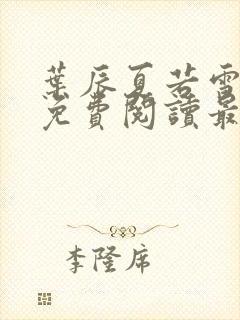 葉辰夏若雪
免費閱讀最
李隆席